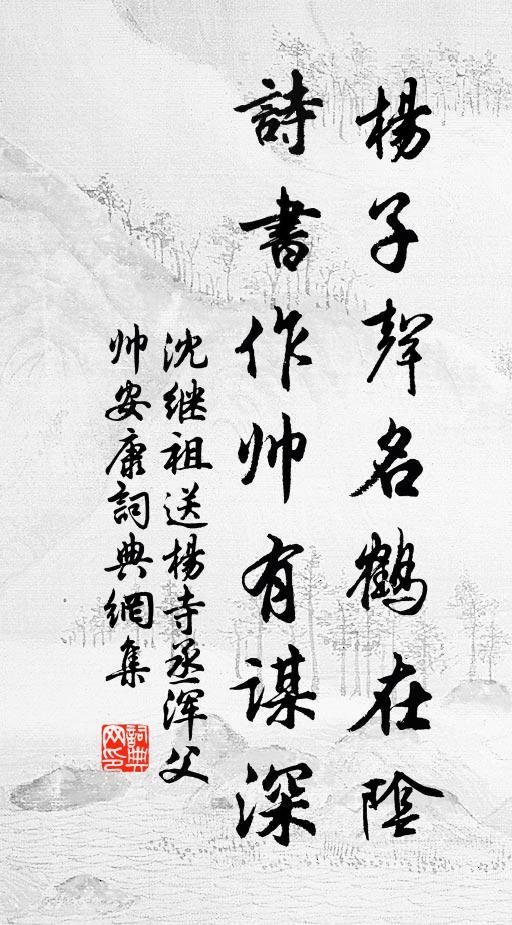 楊子聲名鶴在陰
詩書作帅有谋深
沈继祖送楊寺丞浑父
帅安康詞典網集
詞典
网印